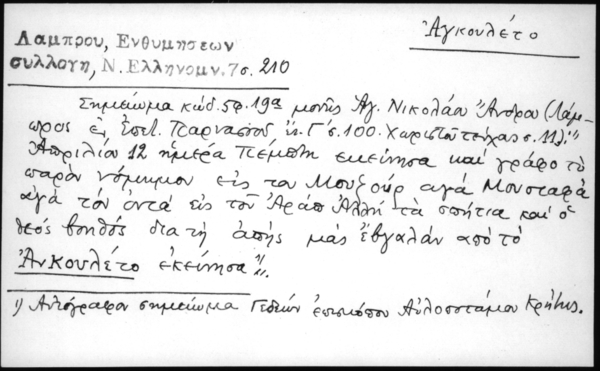 Ἀγκουλέτο
Λαμπρου, Ενθυμησεων
συλλογη, Ν. Ελληνομν. 7 σ. 210
Σημείωμα κώδ. 59. 19α μονῆς Ἁγ. Νικολάου Ἄνδρου (Λάμ-
προς ἐν Ἐπετ. Παρνασσοῦ ἔτ. Γ' σ. 100. Χωριστοῦ τεύχος σ. 11). "
Ἀπριλίου 12 ἡμέρα Πέμπτη εκείνησα καί γράφο τὸ
παρὸν νόμημον εἰς τον Μουζούρ αγά Μουσταφά
αγά τόν ὀντά εἰς τοῦ Ἀράπ Ἀλλή τὰ σπήτια καί ὁ
θεός βοηθός διατή ἀπής μᾶς ἔβγαλάν από τὸ
Ἀνκουλέτο ἐκείνησα"1/.
1) Αυτόγραφον σημείωμα Γεδεών ἐπισκόπου Αὐλοποτάμου Κρήτης.